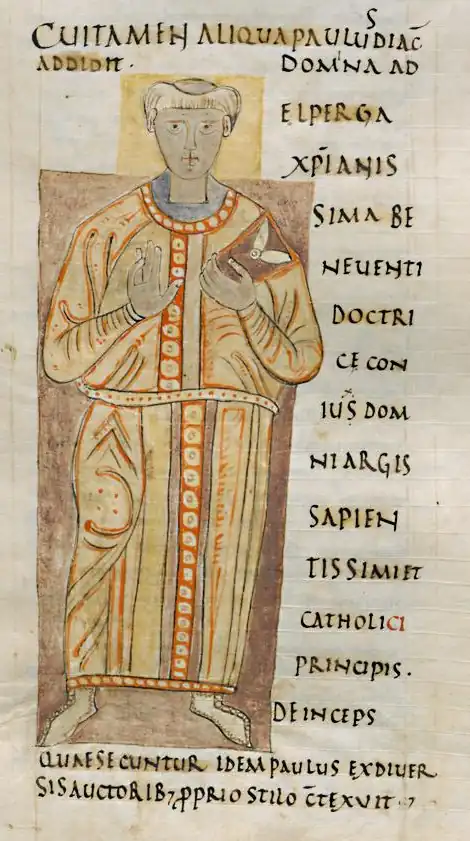 CUI TAMEN ALIQUA PAULUS DIAC̅
ADDIDIT. DOMNA AD
ELPERGA
XP̅IANIS
SIMA BE
NEUENTI
DOCTRI
CE CON
IUS DOM
NI ARGIS
SAPIEN
TISSIMI ET
CATHOLICI
PRINCIPIS.
DEINCEPS
QUAE SECUNTUR IDEM PAULUS EX DIUER
SIS AUCTORIB; ꝓPRIO STILO C̅TEXUIT